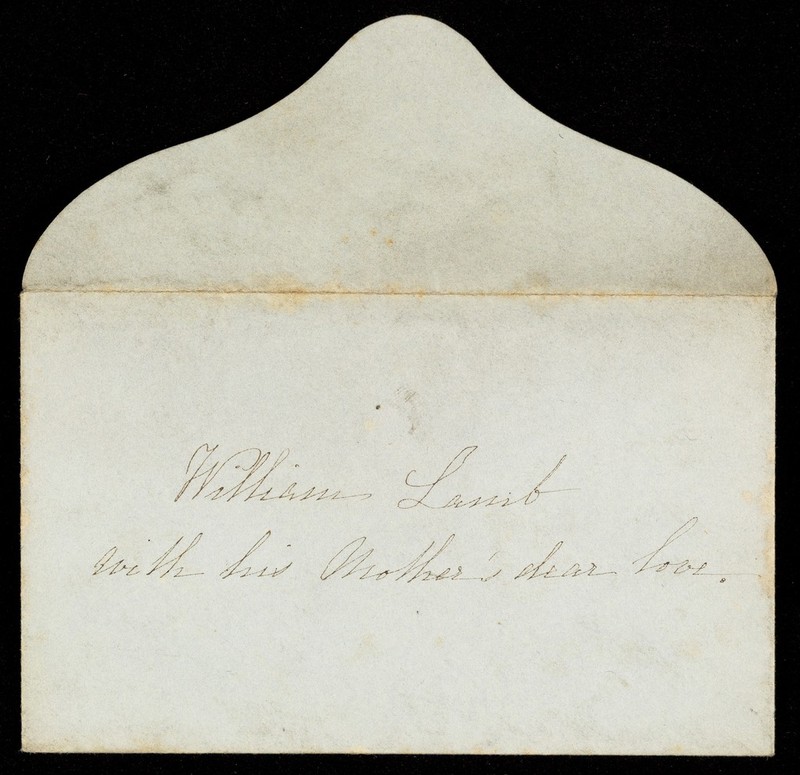 William Lamb
with his Mother's dear love.